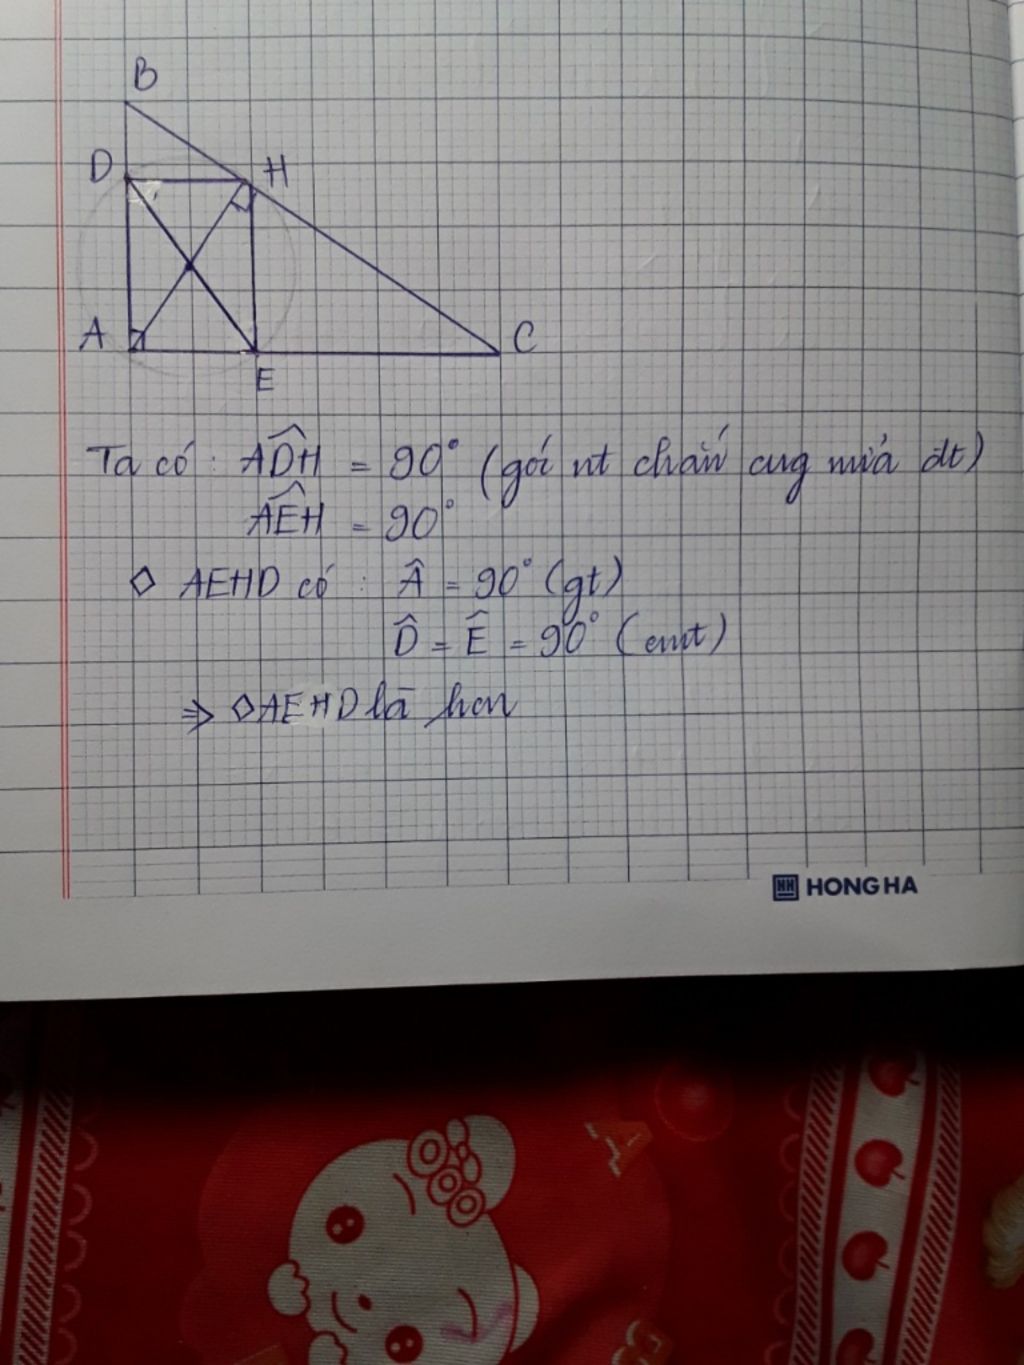 B
D
H
A
E
C
Ta có: ADH = 90° (góc nt chắn cung nửa đt)
AEH = 90°
◇ AEHD có: Â = 90° (gt)
D̂ = Ê = 90° (cmt)
⇒ ◇AEHD là hcn
HONG HA